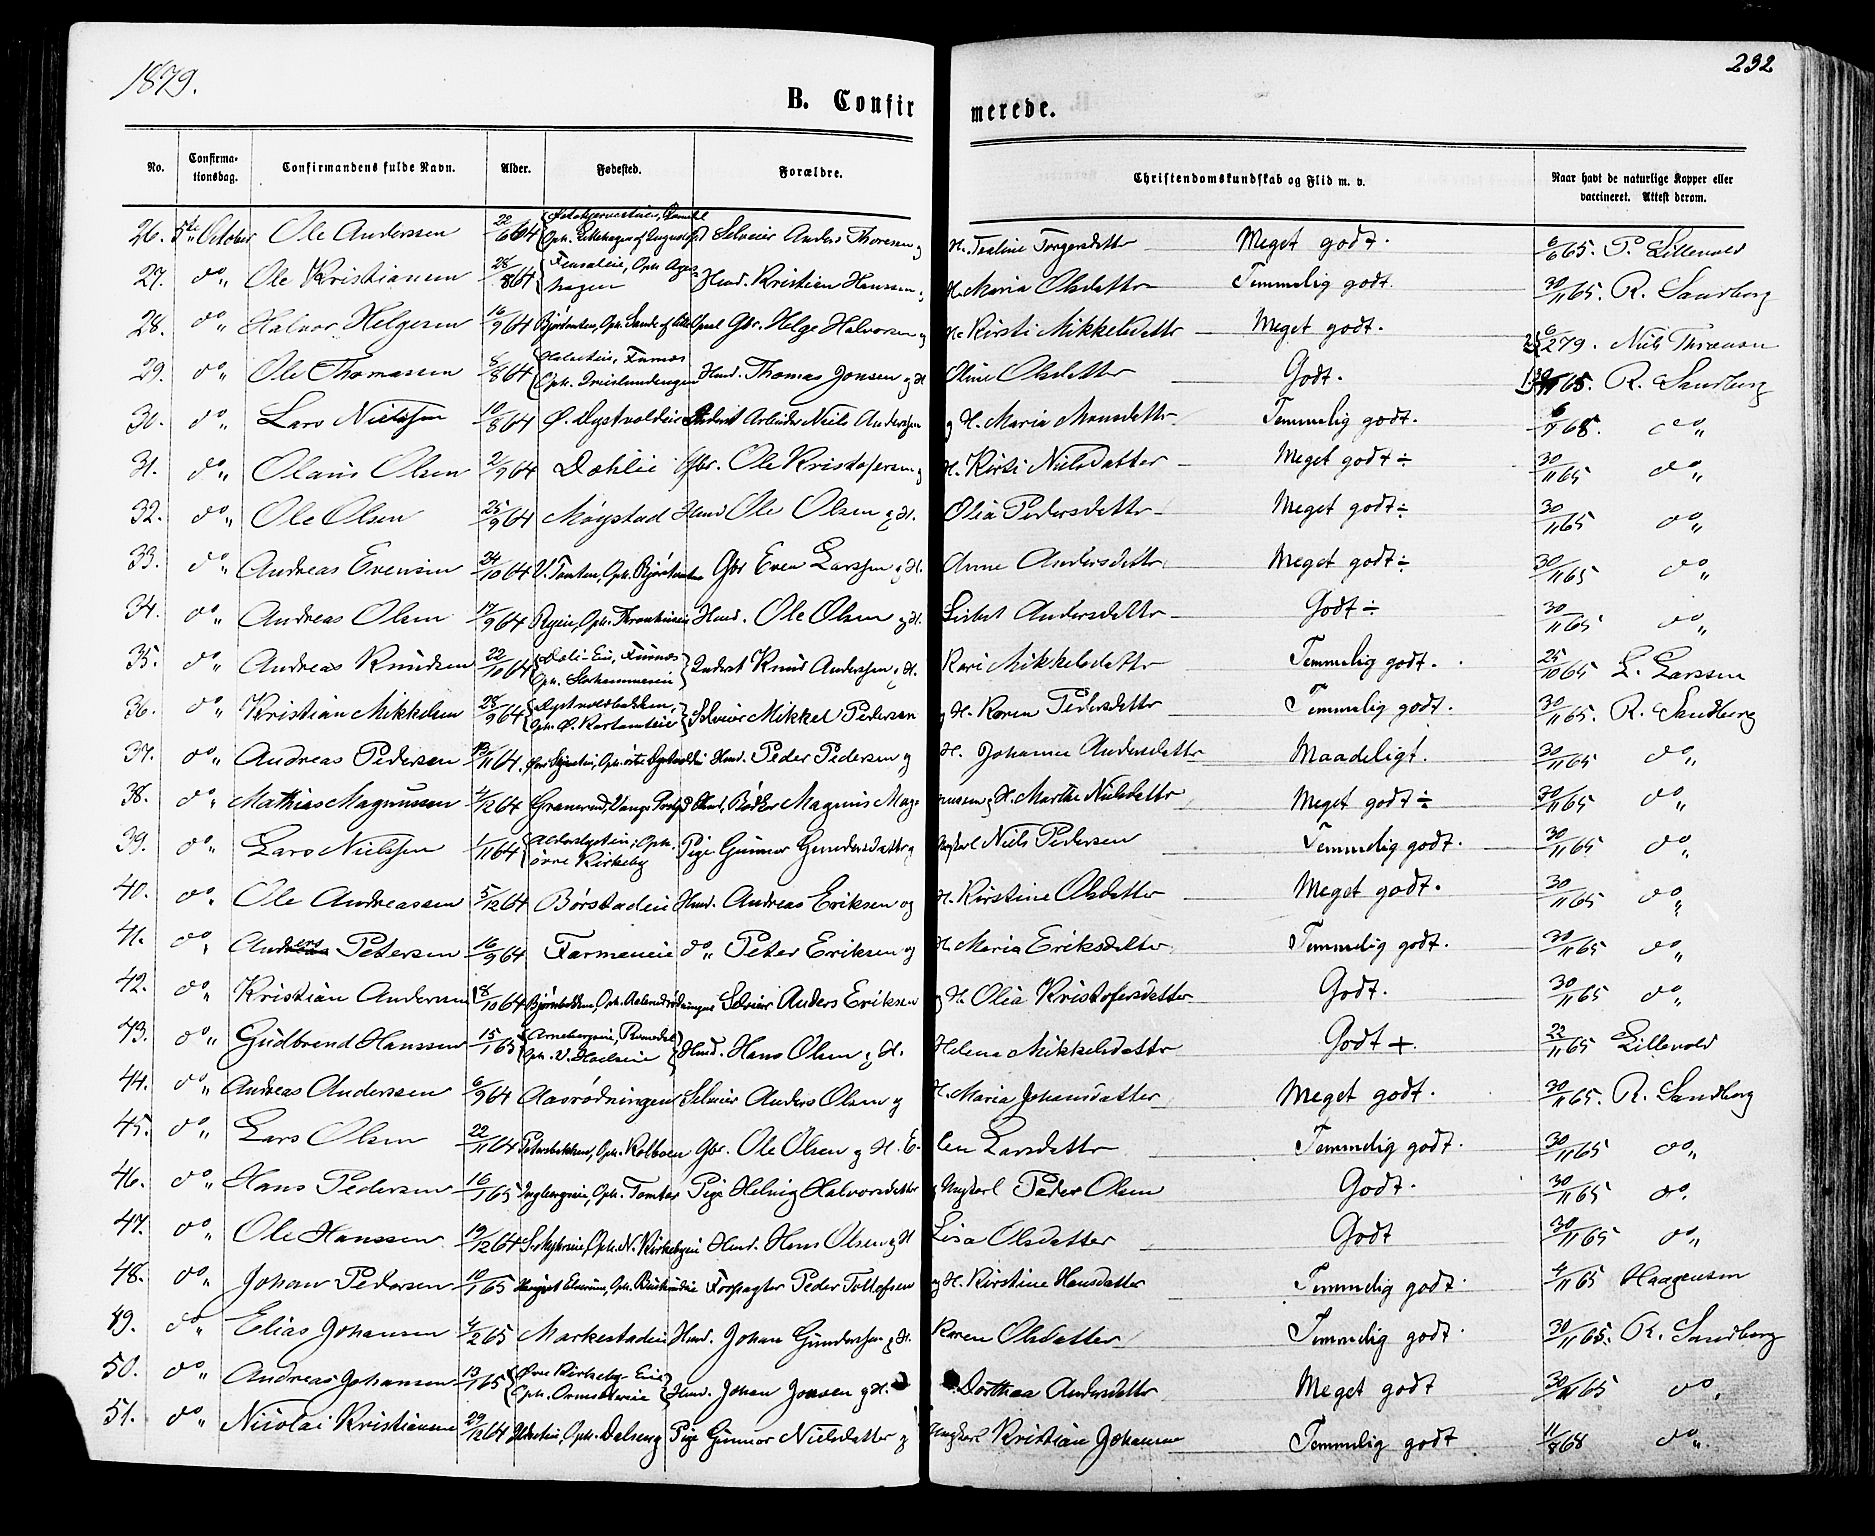 1879.
232
B. Confirmerede.
No. Confirmationsdag. Confirmandens fulde Navn. Alder. Fødested. Forældre. Christendomskundskab og Flid m. v. Naar havt de naturlige Kopper eller vaccineret. Attest derom.
26. 5te October Ole Anderssen 22/6 64 Selveier Anders Thoresen og H. Torgersdattr Meget godt. 6/6 65. P. Lillevold
27. do „ Ole Kristiansen 28/8 64 Husd. Kristian Hanssen og H. Maria Olsdattr Temmelig godt. 30/11 65. R. Sandberg
28. do „ Halvor Helgesen 16/9 64 Gbr. Helge Halvorsen og H. Kirsti Mikkelsdattr Meget godt. 79. Niels
29. do „ Ole Thomassen 8/8 64 Furnes Husd. Thomas Jonsen og H. Oline Olsdattr Godt. 65. R. Sandberg
30. do „ Lars Nielssen 10/8 64 Arbeider Niels Anderssen og H. Maria Monsdattr Temmelig godt. 68. do „
31. do „ Olaus Olsen 2/9 64 Dæhlie Gbr. Ole Kristofersen og H. Kirsti Nielsdatter Meget godt ÷ 30/11 65 do „
32. do „ Ole Olsen 25/9 64 Møystad Husd Ole Olsen og H. Olia Pedersdattr Meget godt ÷ 30/11 65 do „
33. do „ Andreas Evensen 24/10 64 V. Tomten, Oph. Bjørtomten Gbr Even Larssen og H. Anne Andersdattr Meget godt ÷ 30/11 65 do „
34. do „ Andreas Olsen 17/9 64 Husd. Ole Olsen og H. Lisbet Andersdattr Godt ÷ 30/11 65 do „
35. do „ Andreas Knudsen 22/10 64 Furnæs Inderst Knud Anderssen og H. Kari Mikkelsdattr Temmelig godt. 25/10 65 L. Larssen
36. do „ Kristian Mikkelsen 28/9 64 Selveier Mikkel Pedersen og H. Karen Pedersdattr Temmelig godt. 30/11 65. R. Sandberg
37. do „ Andreas Pedersen 64. Husd. Peder Pedersen og H. Johanne Andersdattr Maadeligt. 30/11 65 do „
38. do „ Mathias Magnussen 4/12 64 Granerud, Vangs Husd, Bødker Magnus Magnussen og H. Marthe Nielsdattr Meget godt ÷ 30/11 65 do „
39. do „ Lars Nielssen 1/11 64 Oph. øvre Kirkeby Pige Gunnor Gundersdattr og Ungkarl Niels Pedersen Temmelig godt. 30/11 65 do „
40. do „ Ole Andreassen 5/12 64 Børstadeie Husd. Andreas Eriksen og H. Kirstine Olsdatter Meget godt. 30/11 65 do „
41. do „ Anders Petersen 16/9 64 Farmeneie do „ Peter Eriksen og H. Maria Eriksdatter Temmelig godt. 30/11 65 do „
42. do „ Kristian Andersen 18/10 64 Selveier Anders Eriksen og H. Olia Kristofersdatter Godt. 30/11 65 do „
43. do „ Gudbrand Hanssen 15/1 65 Arnebergeie, Romedal Husd. Hans Olsen og H. Helena Mikkelsdattr Godt +. 22/11 65 Lillevold
44. do „ Andreas Anderssen 6/9 64 Aasrødningen Selveier Anders Olsen og H. Maria Johansdatter Meget godt. 30/11 65. R. Sandberg
45. do „ Lars Olsen 22/11 64 Oph. Kolboen Gbr. Ole Olsen og H. Elen Larsdattr Temmelig godt. 30/11 65 do „
46. do „ Hans Pedersen 16/1 65 Oph. Tomter Pige Helvig Halvorsdatter og Ungkarl Peder Olsen Godt. 30/11 65 do „
47. do „ Ole Hanssen 19/12 64 Oph. N. Kirkebyeie Husd. Hans Olsen og H Lisa Olsdatter Godt 30/11 65 do „
48. do „ Johan Pedersen 10/1 65 Forpagter Peder Tollofsen og H. Kirstine Hansdatter Temmelig godt. 4/11 65 Haagensen
49. do „ Elias Johansen 4/2 65 Markestadeie Husd. Johan Gunderssen og H. Karen Olsdatter Temmelig godt. 30/11 65. R. Sandberg
50. do „ Andreas Johansen 13/1 65 Øvre Kirkeby Eie Husd. Johan Jonsen og H. Dorthea Andersdattr Meget godt 30/11 65 do „
51. do „ Nicolai Kristiansen 29/12 64 Oph. Dalseng Pige Gunnor Nielsdatter og Ungkarl Kristian Johansen Temmelig godt 11/8 68 do „